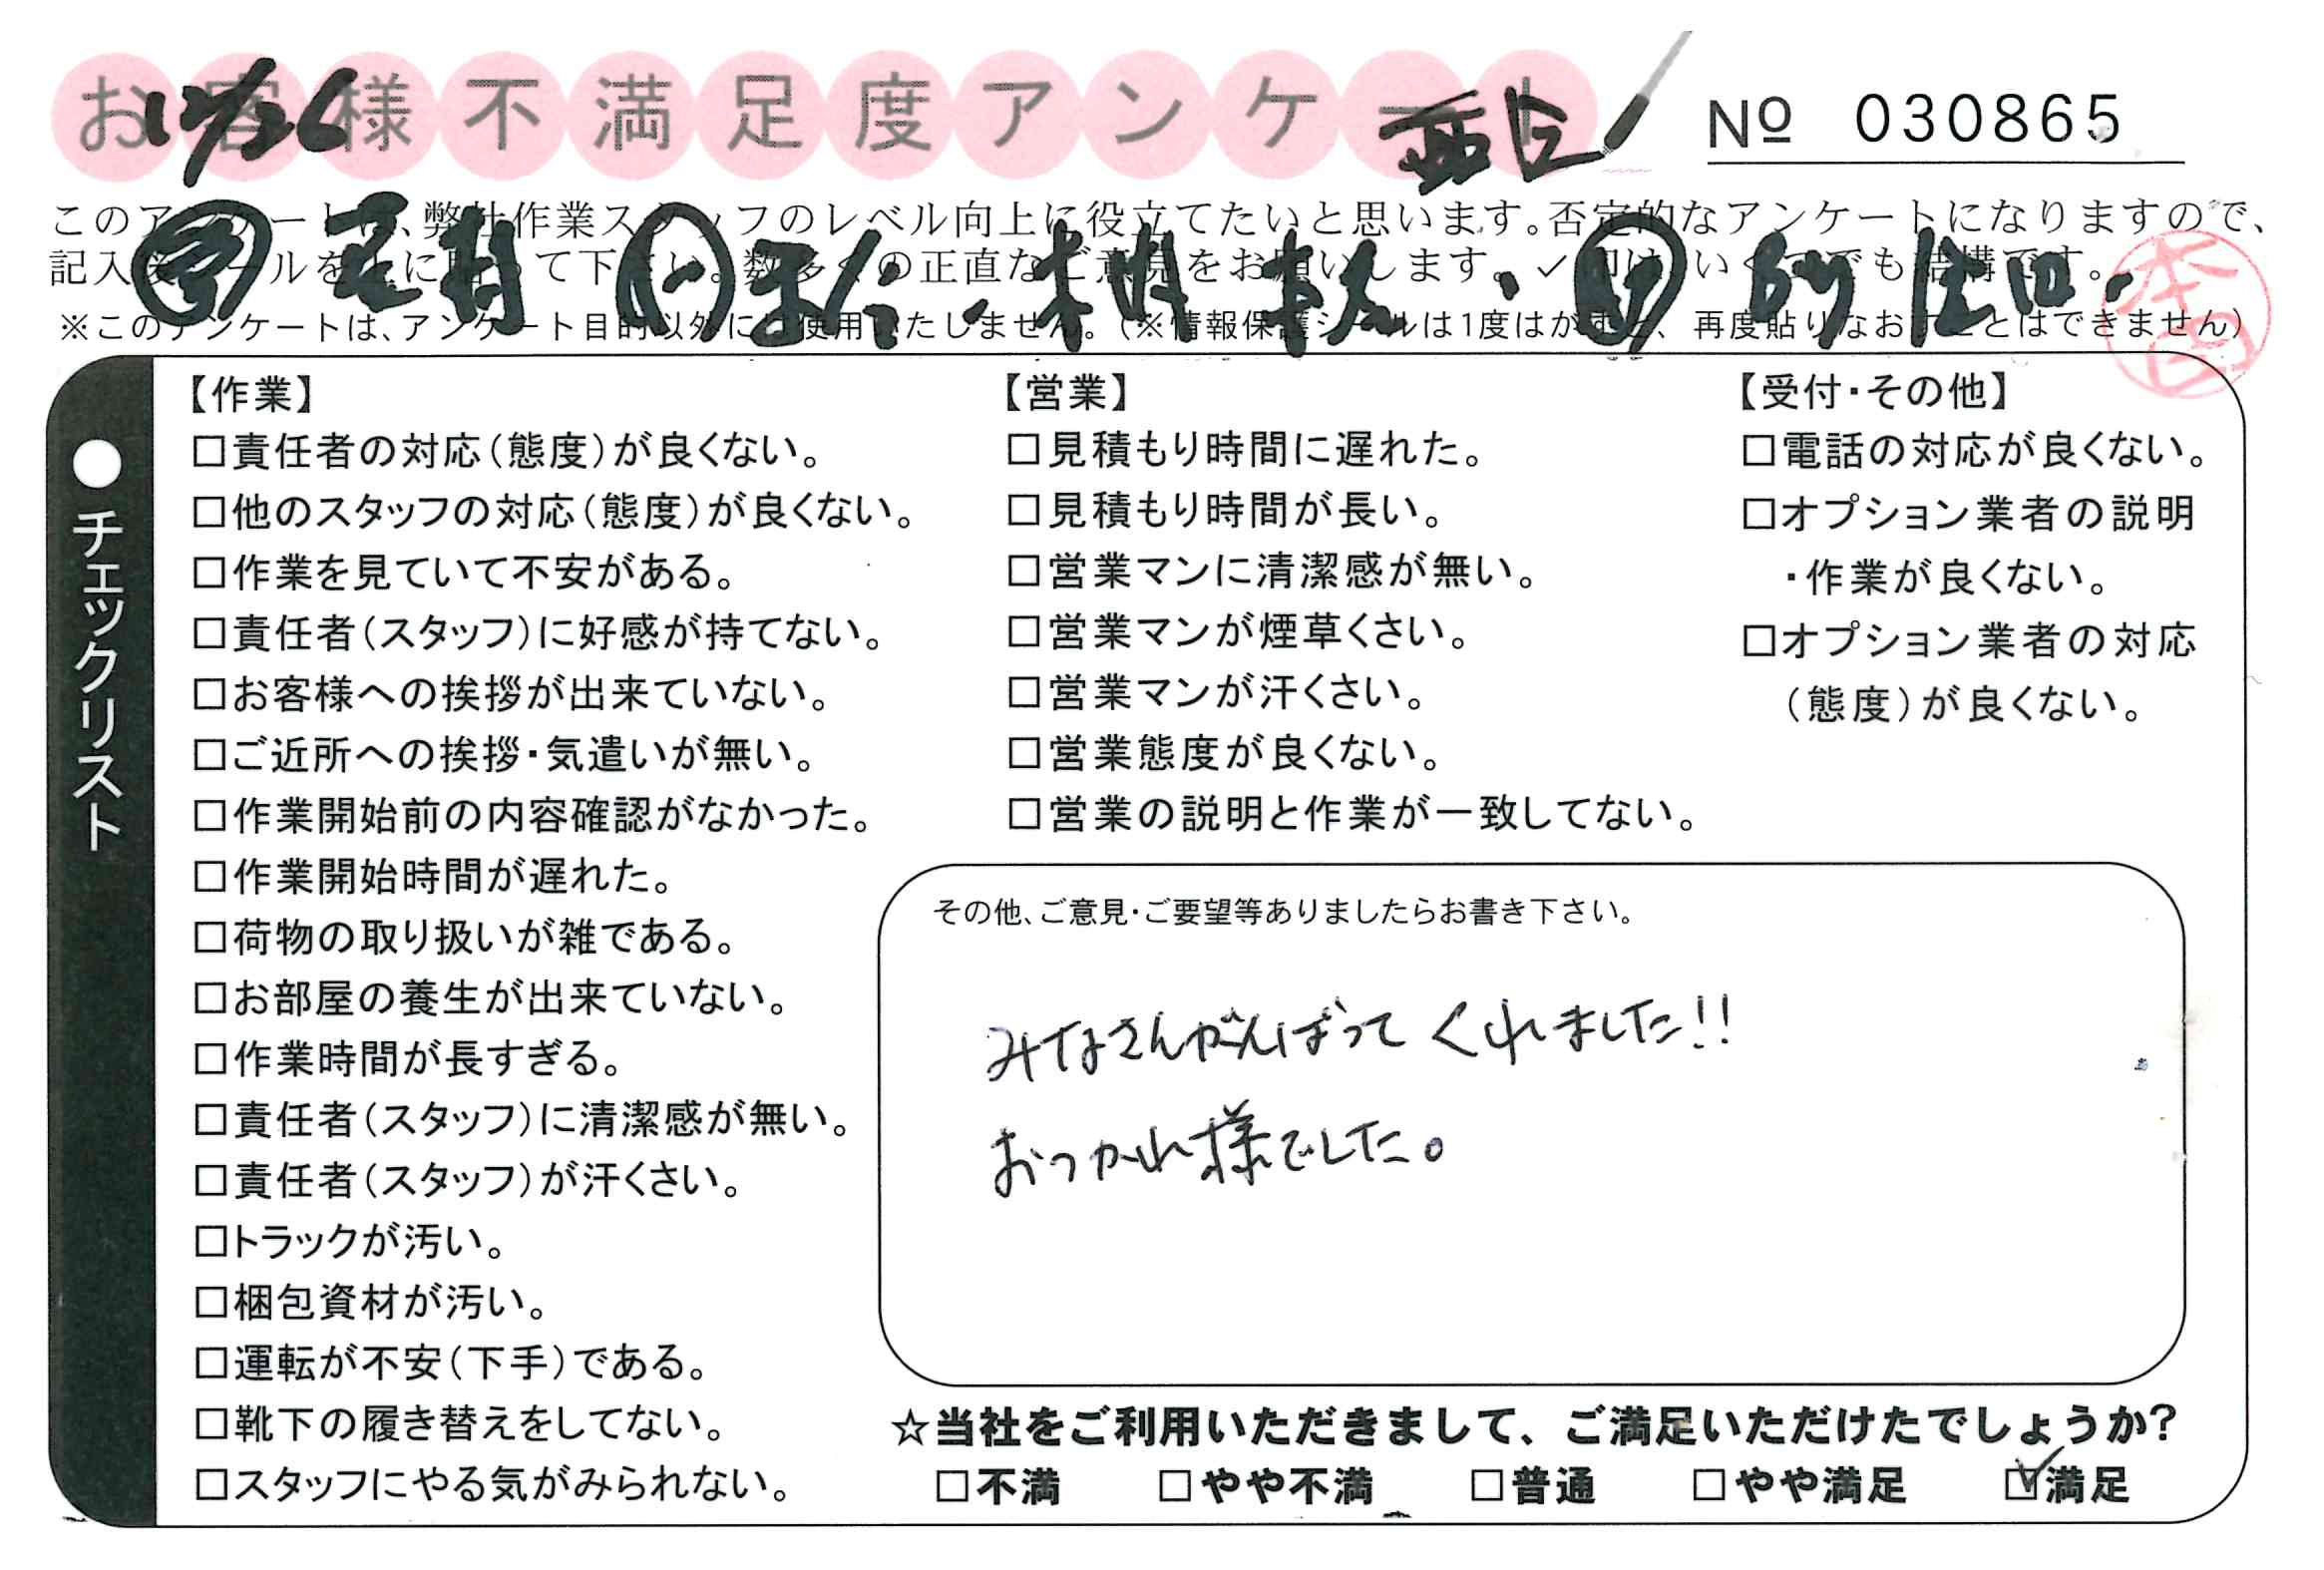 お客様不満足度アンケート
12/26
No 030865
このアンケートは、弊社作業スタッフのレベル向上に役立てたいと思います。否定的なアンケートになりますので、
記入後シールを上に貼って下さい。数多くの正直なご意見をお願いします。✓印はいくつでも結構です。
※このアンケートは、アンケート目的以外には使用いたしません。(※情報保護シールは1度はがすと、再度貼りなおすことはできません)
●チェックリスト
【作業】
□責任者の対応(態度)が良くない。
□他のスタッフの対応(態度)が良くない。
□作業を見ていて不安がある。
□責任者(スタッフ)に好感が持てない。
□お客様への挨拶が出来ていない。
□ご近所への挨拶・気遣いが無い。
□作業開始前の内容確認がなかった。
□作業開始時間が遅れた。
□荷物の取り扱いが雑である。
□お部屋の養生が出来ていない。
□作業時間が長すぎる。
□責任者(スタッフ)に清潔感が無い。
□責任者(スタッフ)が汗くさい。
□トラックが汚い。
□梱包資材が汚い。
□運転が不安(下手)である。
□靴下の履き替えをしてない。
□スタッフにやる気がみられない。
【営業】
□見積もり時間に遅れた。
□見積もり時間が長い。
□営業マンに清潔感が無い。
□営業マンが煙草くさい。
□営業マンが汗くさい。
□営業態度が良くない。
□営業の説明と作業が一致してない。
【受付・その他】
□電話の対応が良くない。
□オプション業者の説明
・作業が良くない。
□オプション業者の対応
(態度)が良くない。
その他、ご意見・ご要望等ありましたらお書き下さい。
みなさんがんばってくれました!!
おつかれ様でした。
☆当社をご利用いただきまして、ご満足いただけたでしょうか?
□不満 □やや不満 □普通 □やや満足 ☑満足